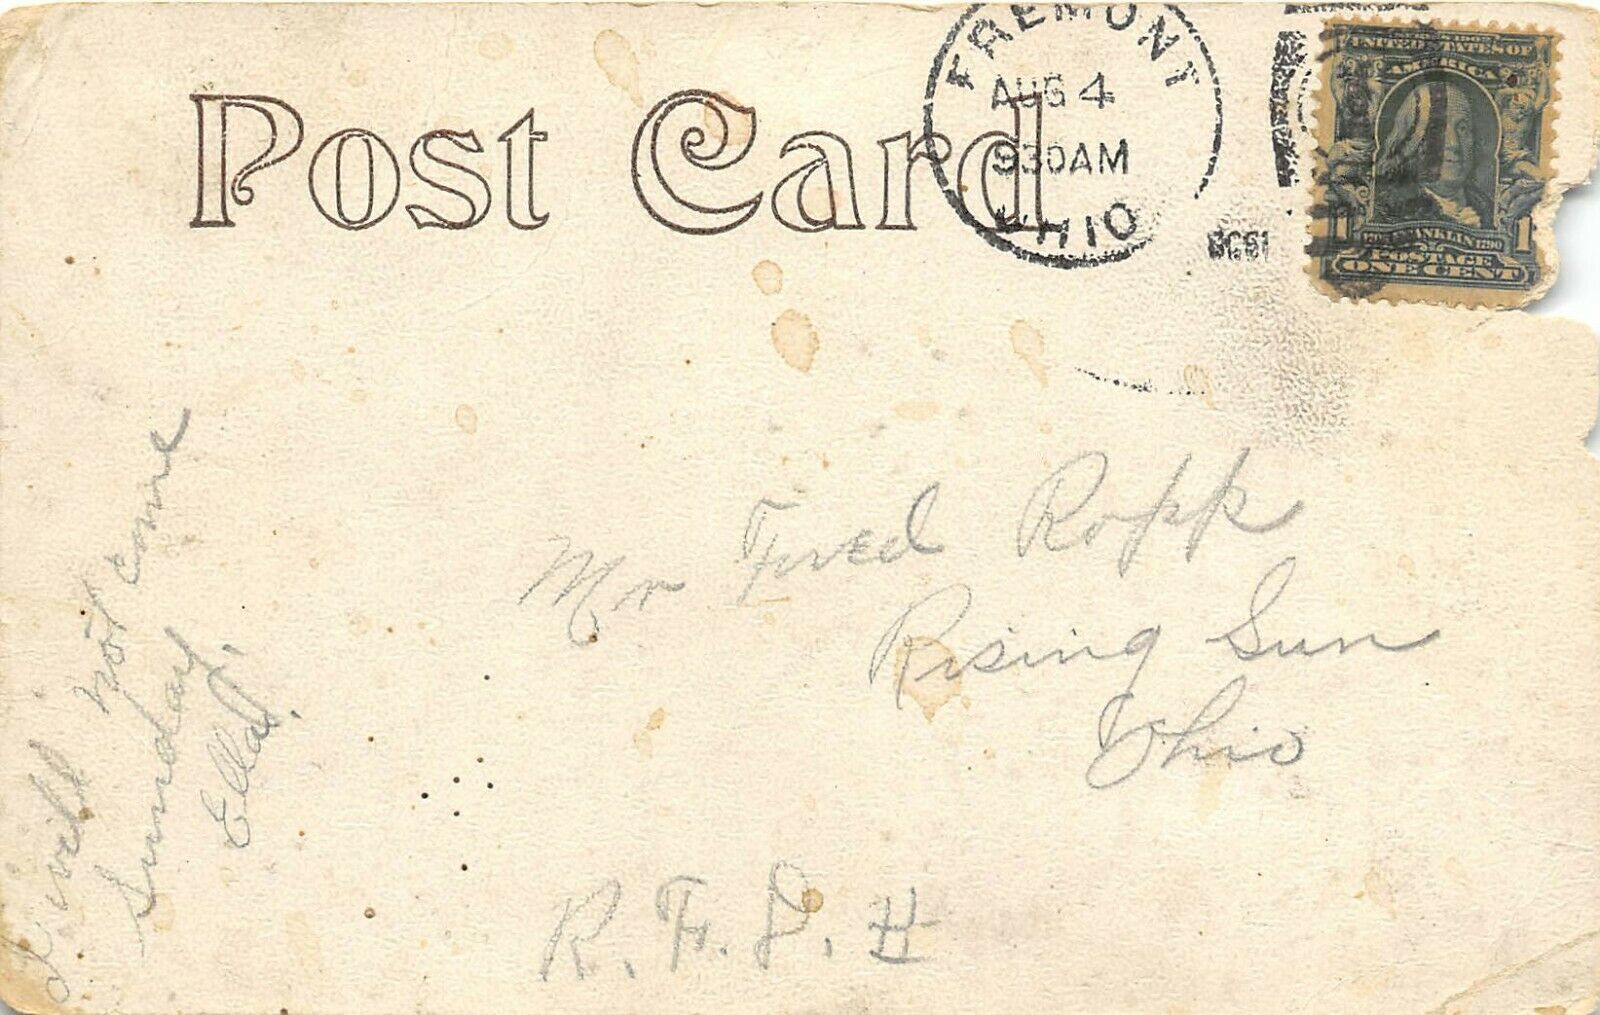 Post Card
FREMONT
AUG 4
930AM
OHIO
SERIES 1902
UNITED STATES OF
AMERICA
1 FRANKLIN 1790 1
POSTAGE
ONE CENT
Mr Fred Ropp
Rising Sun
Ohio
R. F. D. #
I will not come
Sunday.
Ella.